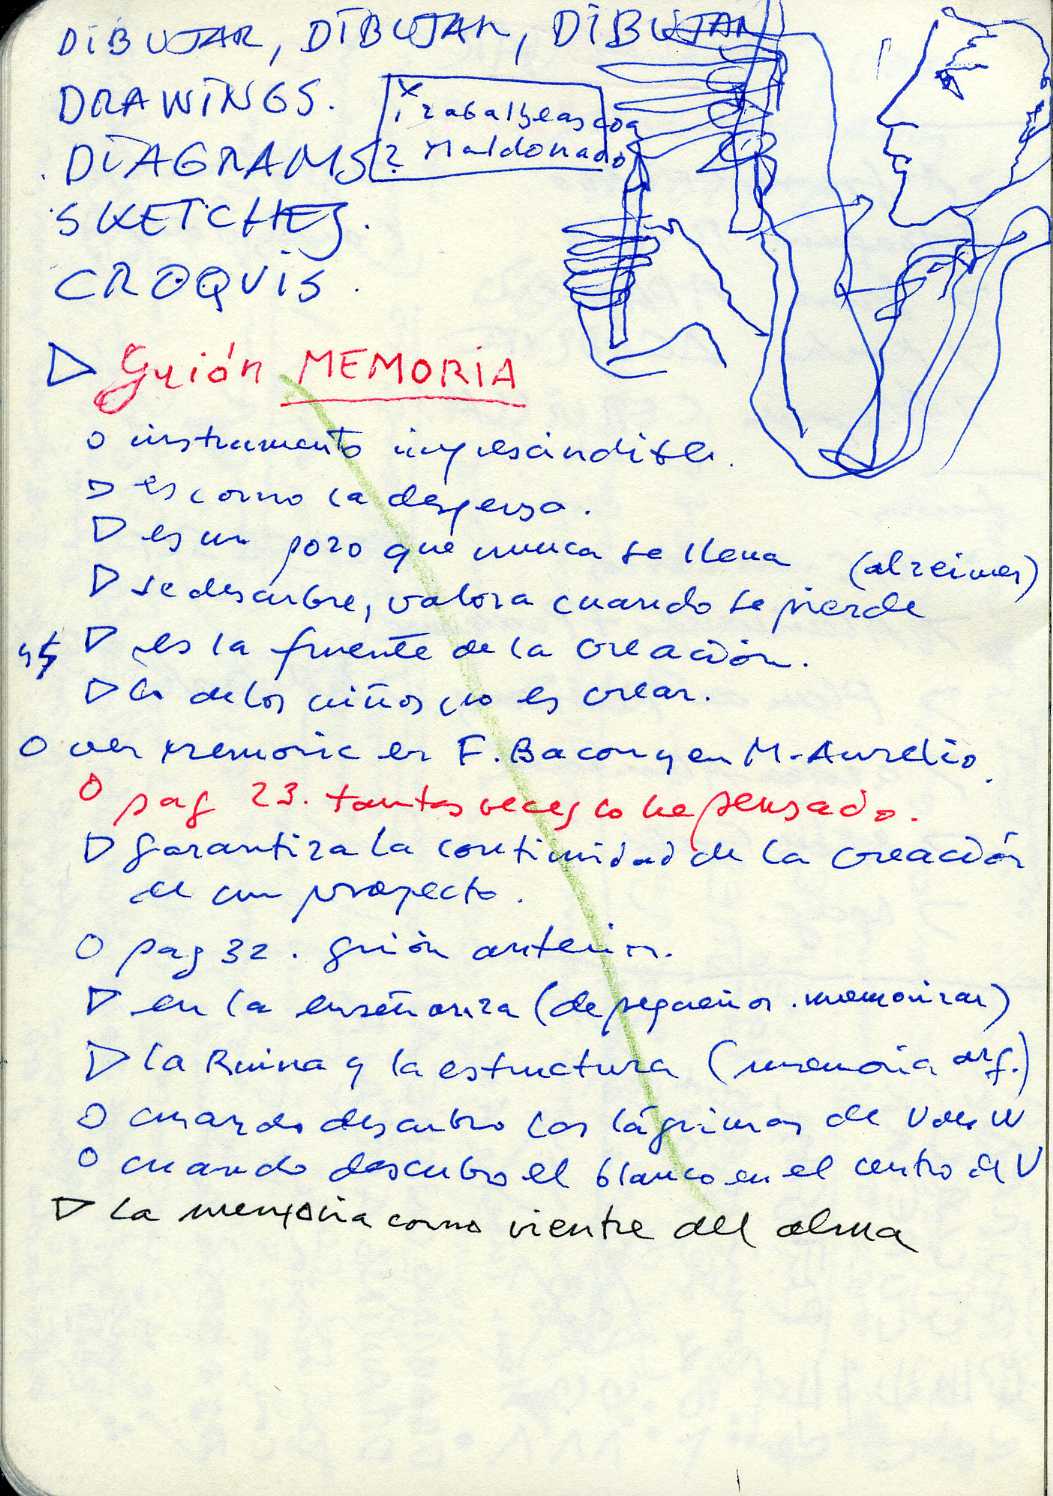 DIBUJAR, DIBUJAR, DIBUJAR
DRAWINGS.
DIAGRAMS
SKETCHES.
CROQUIS.
Zabalbeascoa
? Maldonado
Guión MEMORIA
instrumento imprescindible.
es como la despensa.
es un pozo que nunca se llena
(alzeimer)
se descubre, valora cuando se pierde
es la fuente de la creación.
la de los niños no es crear.
ver memoria en F. Bacon y en M. Aurelio.
pag 23. tantas veces lo he pensado.
garantiza la continuidad de la creación
de un proyecto.
pag 32. guión anterior.
en la enseñanza (de pequeños. memorizar)
la Ruina y la estructura (memoria arq.)
cuando descubro las lágrimas de V der W
cuando descubro el blanco en el centro de V
la memoria como vientre del alma